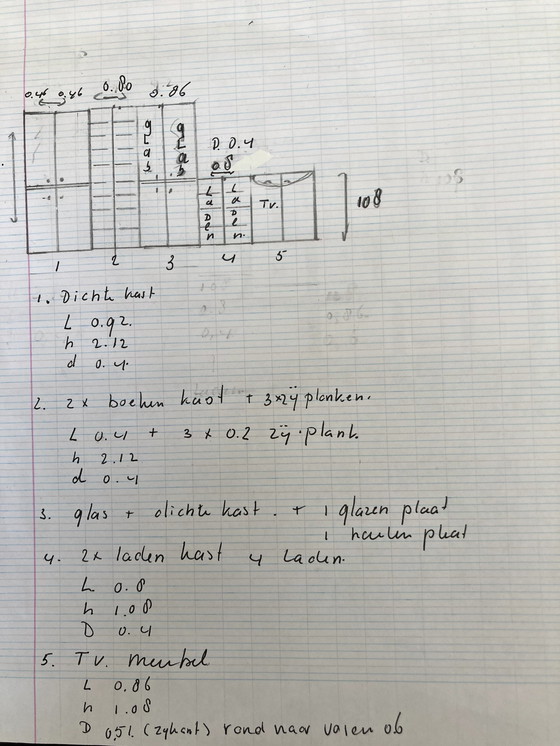 0.46 0.46 0.80 0.86
glas glas
D. 0.4
0.8
Laden Laden
Tv.
108
1 2 3 4 5
1. Dichte kast
L 0.92.
h 2.12
d 0.4.
2. 2x boeken kast + 3xzÿ planken.
L 0.4 + 3 x 0.2 zÿ.plank.
h 2.12
d 0.4
3. glas + dichte kast. + 1 glazen plaat
1 houten plaat
4. 2x laden kast 4 Laden.
L 0.8
h 1.08
D 0.4
5. Tv. meubel
L 0.86
h 1.08
D 0,51. (zykant) rond naar voren